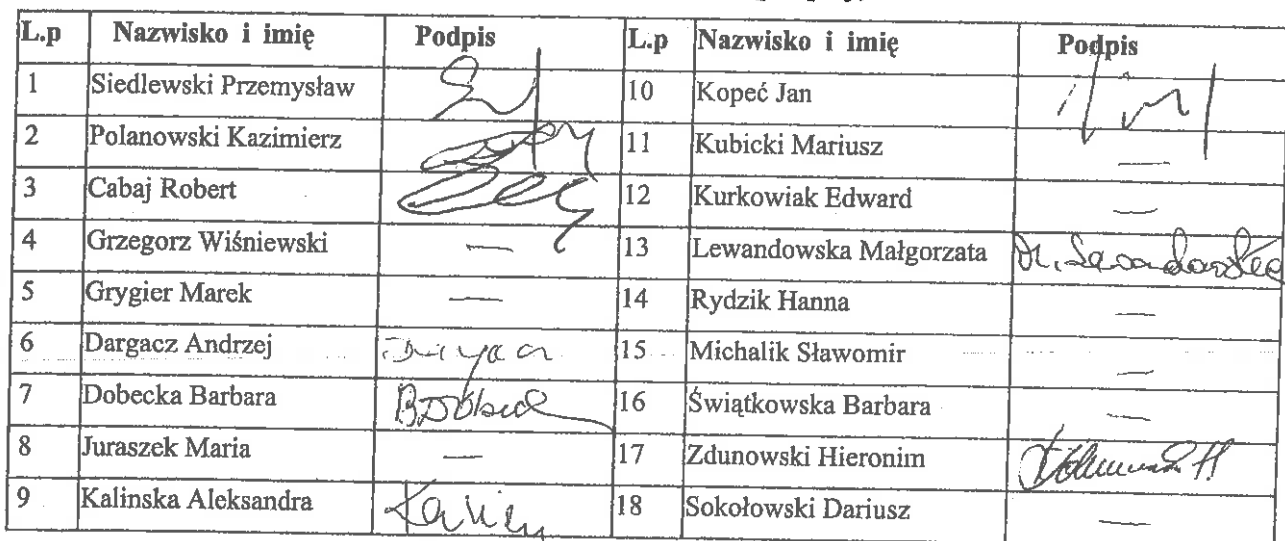 L.p Nazwisko i imię Podpis L.p Nazwisko i imię Podpis
1 Siedlewski Przemysław 10 Kopeć Jan
2 Polanowski Kazimierz 11 Kubicki Mariusz —
3 Cabaj Robert 12 Kurkowiak Edward —
4 Grzegorz Wiśniewski — 13 Lewandowska Małgorzata M. Lewandowska
5 Grygier Marek — 14 Rydzik Hanna —
6 Dargacz Andrzej 15 Michalik Sławomir —
7 Dobecka Barbara 16 Świątkowska Barbara —
8 Juraszek Maria — 17 Zdunowski Hieronim
9 Kalinska Aleksandra 18 Sokołowski Dariusz —